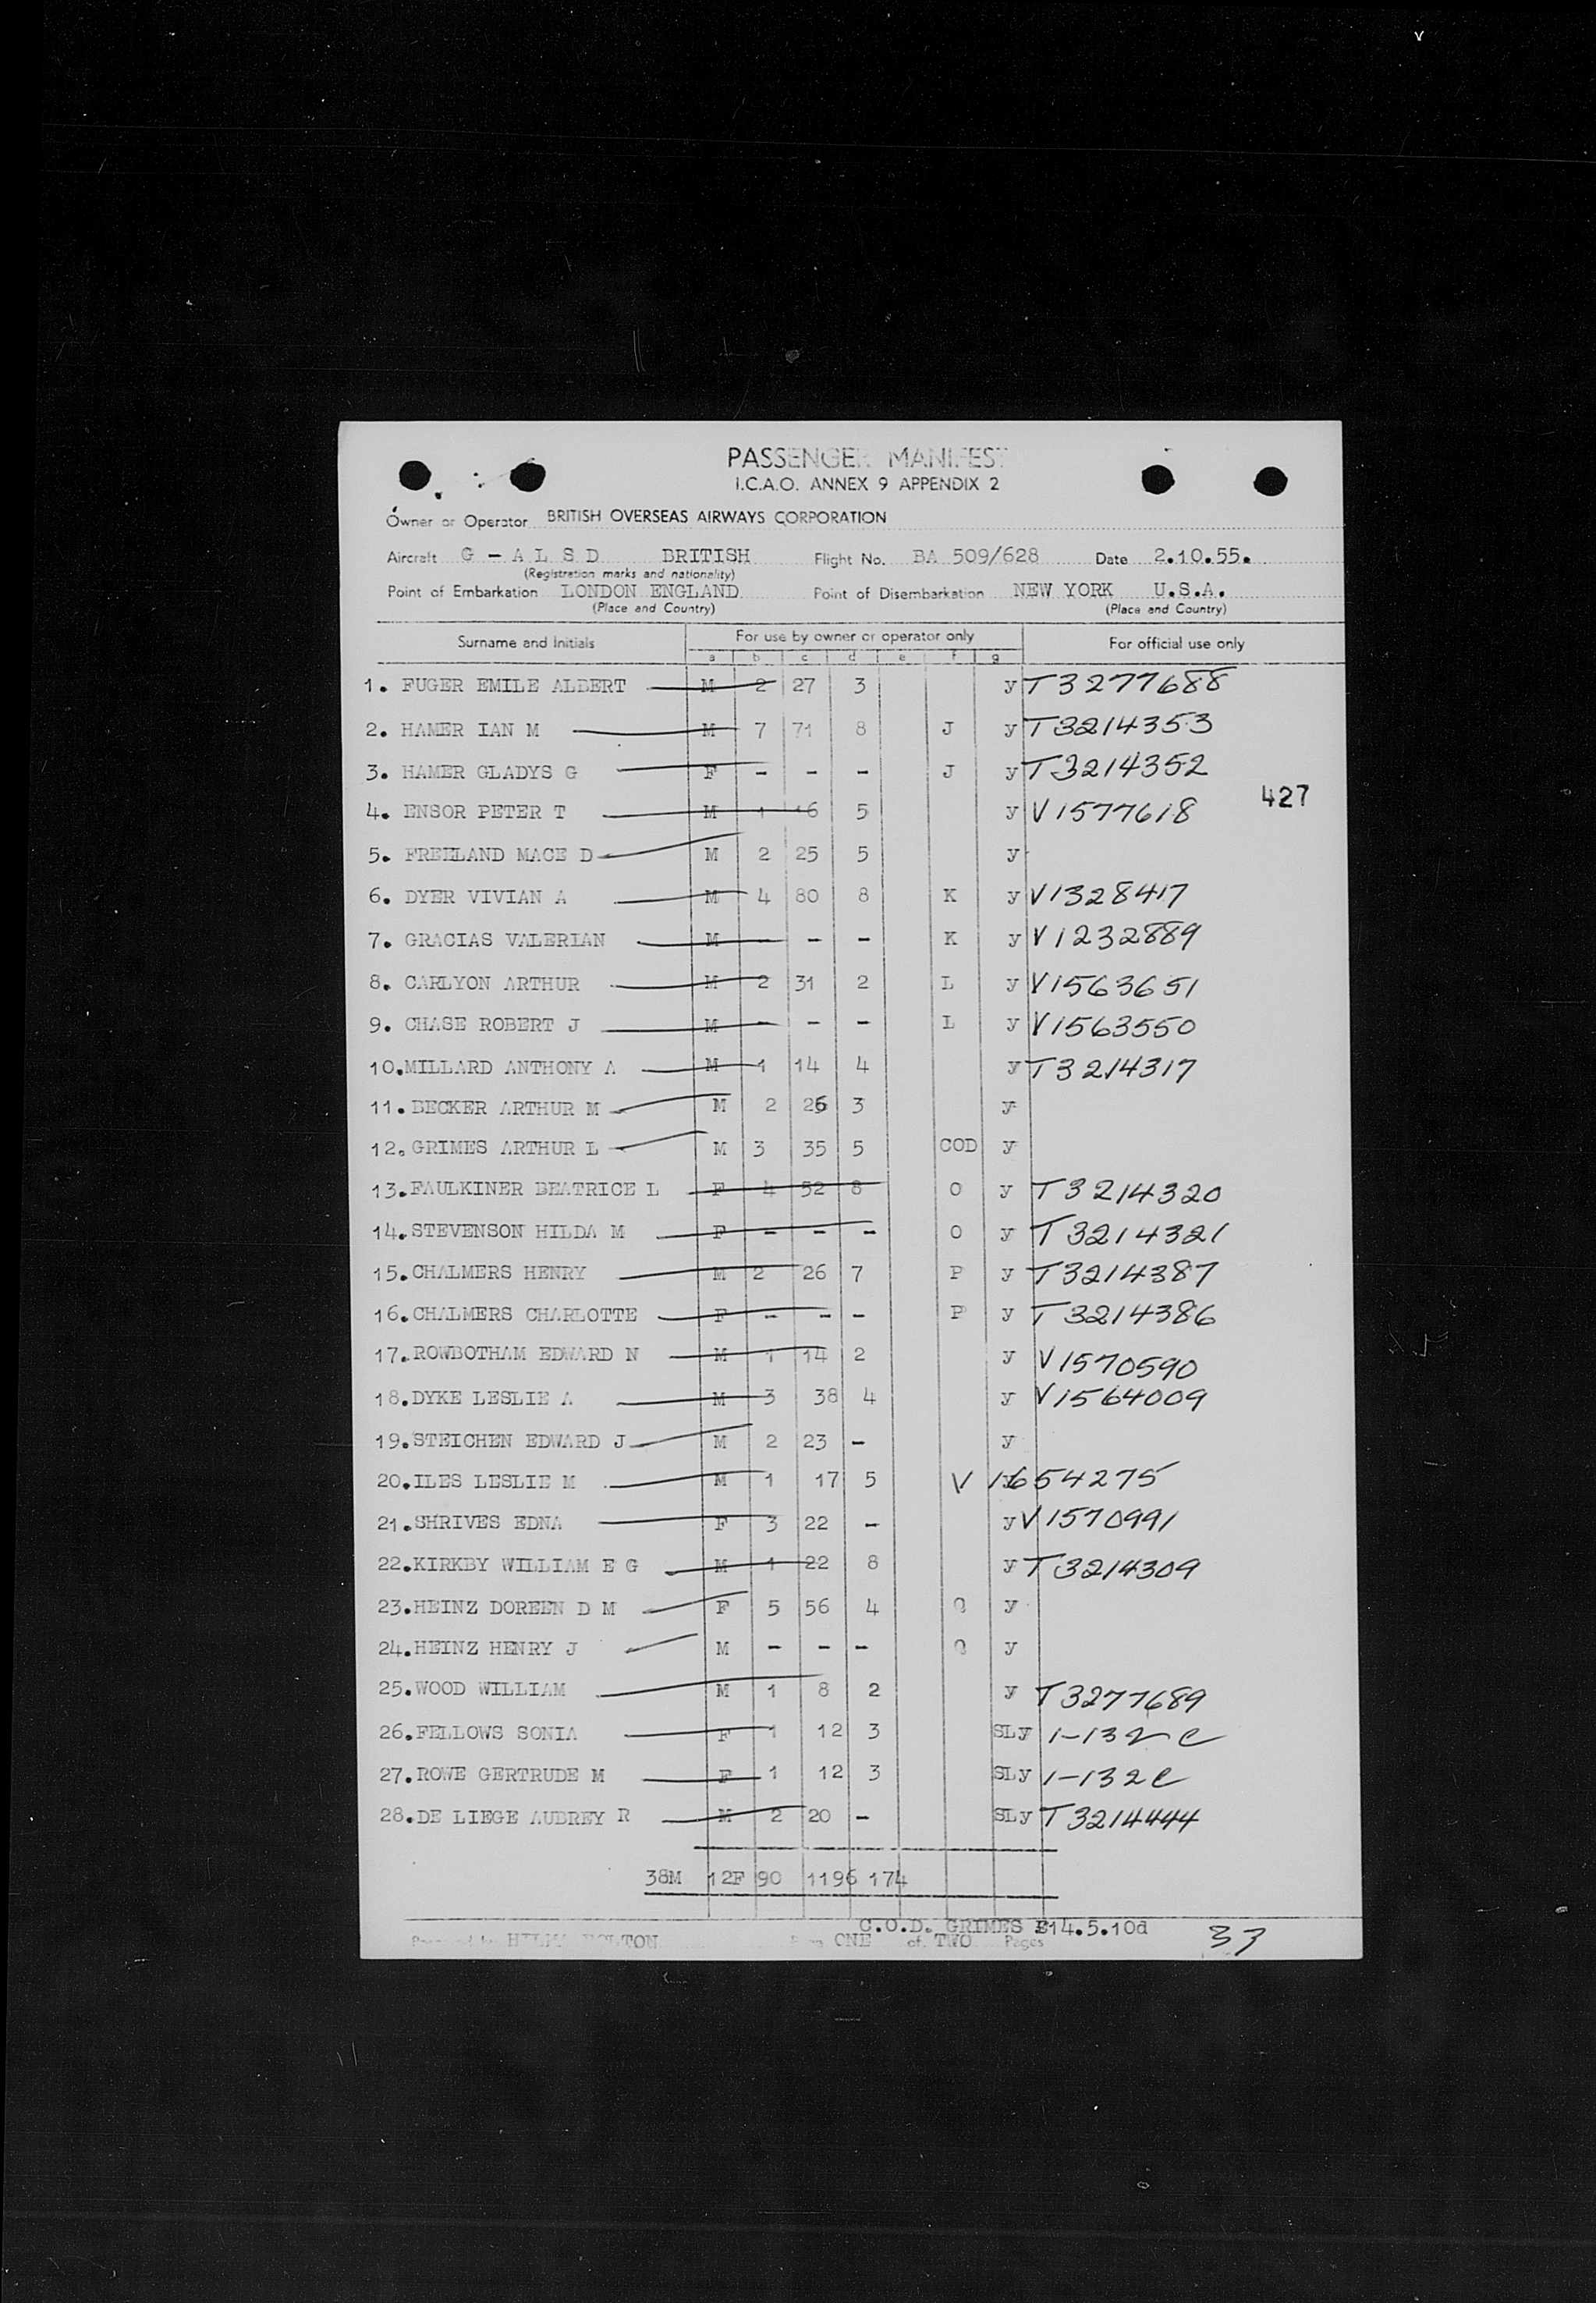 PASSENGER MANIFEST
I.C.A.O. ANNEX 9 APPENDIX 2
Owner or Operator BRITISH OVERSEAS AIRWAYS CORPORATION
Aircraft G - A L S D BRITISH Flight No. BA 509/628 Date 2.10.55.
(Registration marks and nationality)
Point of Embarkation LONDON ENGLAND Point of Disembarkation NEW YORK U.S.A.
(Place and Country) (Place and Country)
Surname and Initials For use by owner or operator only For official use only
a b c d e f g
1. FUGER EMILE ALBERT M 2 27 3 y T3277688
2. HAMER IAN M M 7 71 8 J y T3214353
3. HAMER GLADYS G F - - - J y T3214352
427
4. ENSOR PETER T M 1 16 5 y V1577618
5. FREELAND MACE D M 2 25 5 y
6. DYER VIVIAN A M 4 80 8 K y V1328417
7. GRACIAS VALERIAN M - - - K y V1232889
8. CARLYON ARTHUR M 2 31 2 L y V1563651
9. CHASE ROBERT J M - - - L y V1563550
10.MILLARD ANTHONY A M 1 14 4 y T3214317
11.BECKER ARTHUR M M 2 26 3 y
12.GRIMES ARTHUR L M 3 35 5 COD y
13.FAULKINER BEATRICE L F 4 52 8 O y T3214320
14.STEVENSON HILDA M F - - - O y T3214321
15.CHALMERS HENRY M 2 26 7 P y T3214387
16.CHALMERS CHARLOTTE F - - - P y T3214386
17.ROWBOTHAM EDWARD N M 1 14 2 y V1570590
18.DYKE LESLIE A M 3 38 4 y V1564009
19.STEICHEN EDWARD J M 2 23 - y
20.ILES LESLIE M M 1 17 5 y V1654275
21.SHRIVES EDNA F 3 22 - y V1570991
22.KIRKBY WILLIAM E G M 1 22 8 y T3214309
23.HEINZ DOREEN D M F 5 56 4 Q y
24.HEINZ HENRY J M - - - Q y
25.WOOD WILLIAM M 1 8 2 y T3277689
26.FELLOWS SONIA F 1 12 3 SLy 1-132 C
27.ROWE GERTRUDE M F 1 12 3 SLy 1-132 C
28.DE LIEGE AUBREY R M 2 20 - SLy T3214444
38M 12F 90 1196 174
C.O.D. GRIMES £14.5.10d
Prepared by HILMA BOLTON ONE of TWO Pages 33